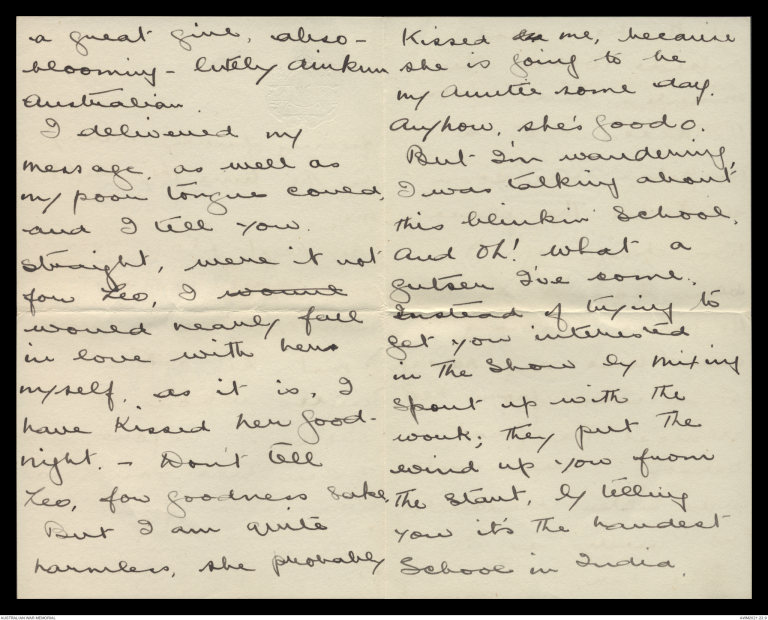 a great girl, abso-
blooming-lutely dinkum
Australian.
I delivered my
message, as well as
my poor tongue could,
and I tell you
straight, were it not
for Leo, I would
would nearly fall
in love with her
myself, as it is, I
have kissed her good-
night. - Don't tell
Leo, for goodness sake.
But I am quite
harmless, she probably
kissed me, because
she is going to be
my Auntie some day.
Anyhow, she's good o.
But I'm wandering,
I was talking about
this blinkin' School.
And Oh! what a
gutser I've come.
Instead of trying to
get you interested
in the show by mixing
Sport up with the
work; they put the
wind up you from
the start, by telling
you it's the hardest
School in India.
AUSTRALIAN WAR MEMORIAL
AWM2021.22.9